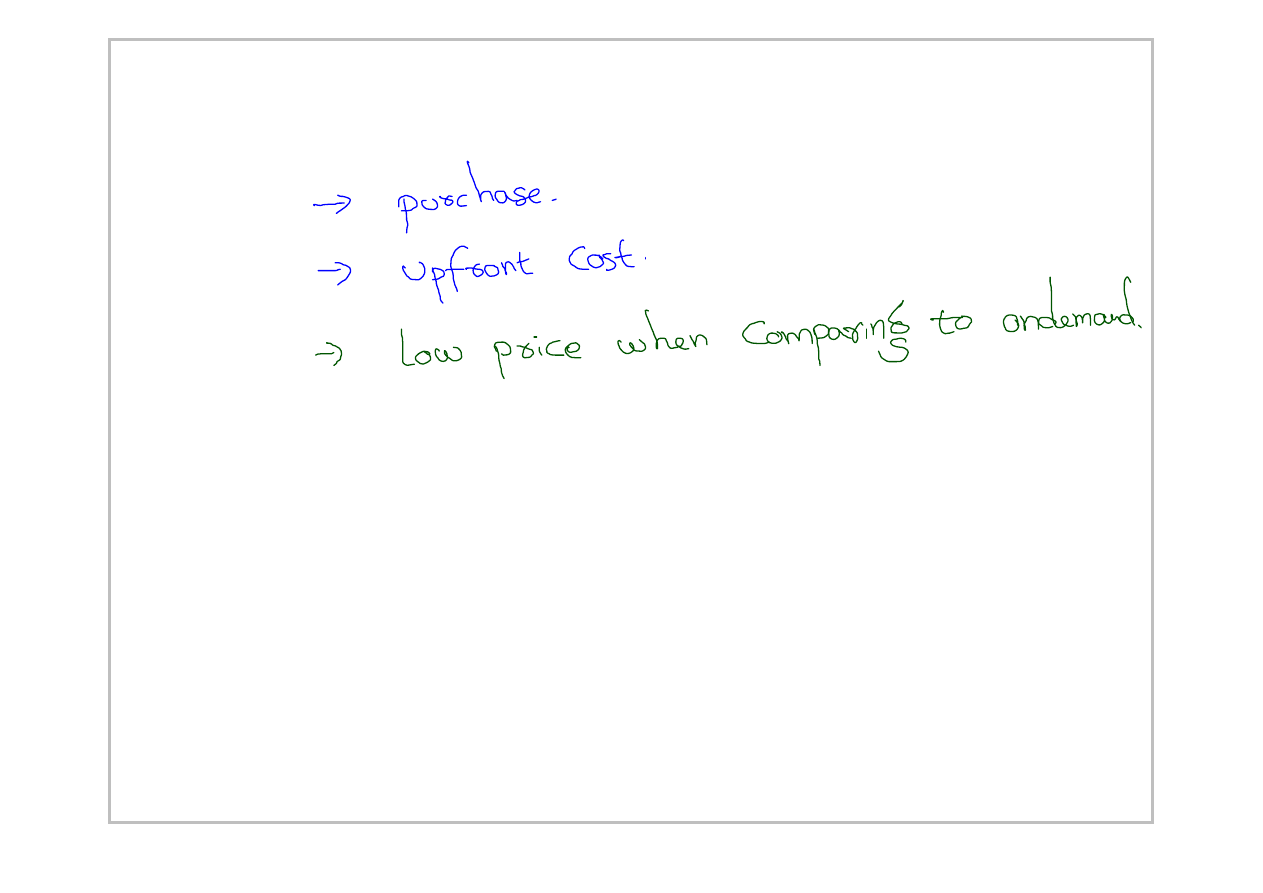 → purchase.
→ upfront cost.
→ Low price when Comparing to ondemand.